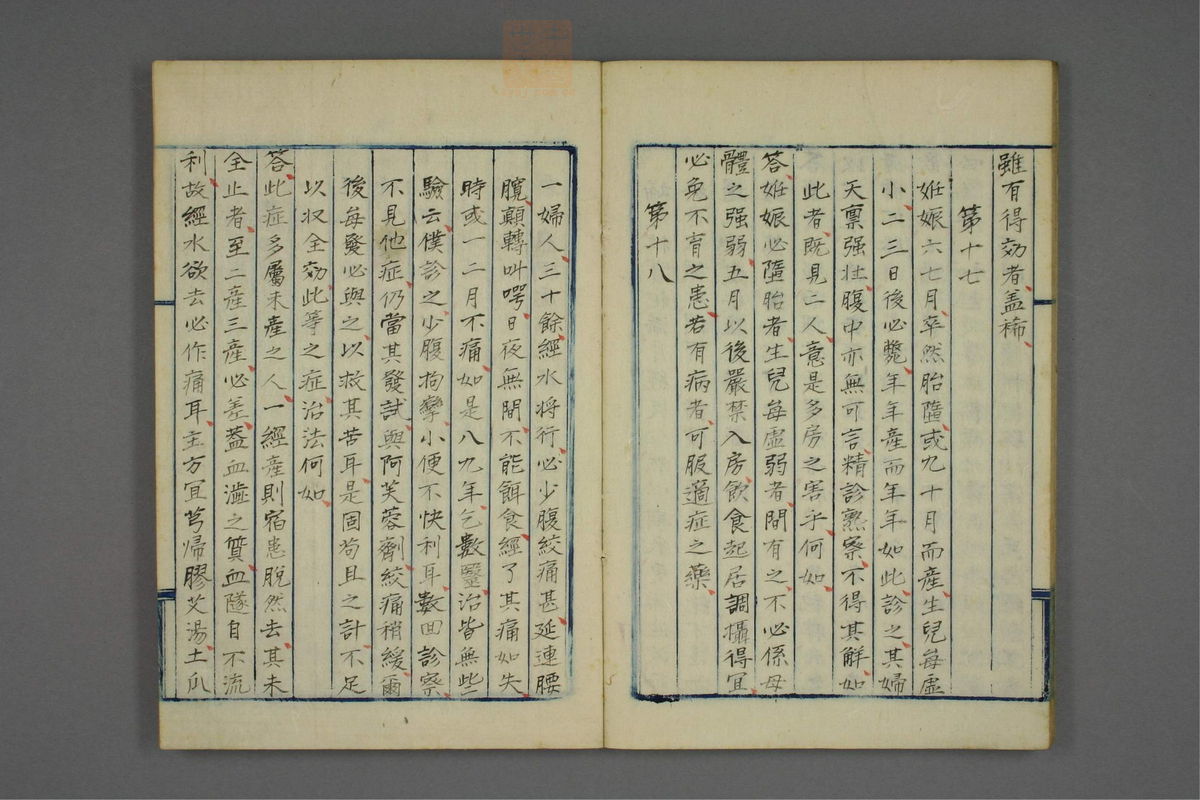 雖有得効者盖稀
第十七
妊娠六七月卒然胎隨或九十月而產生兒每虛
小二三日後必斃年年產而年年如此診之其婦
天稟强壯腹中亦無可言精診熟察不得其解如
此者既見二人意是多房之害乎何如
答妊娠必隨胎者生兒每虛弱者間有之不必係母
體之强弱五月以後嚴禁入房飲食起居調攝得宜
必免不育之患若有病者可服適症之藥
第十八
一婦人三十餘經水将行必少腹絞痛甚延連腰
臗顛轉叫咢日夜無間不能餌食經了其痛如失
時或一二月不痛如是八九年乞數毉治皆無些
驗云僕診之少腹拘攣小便不快利耳數囬診察
不見他症仍當其發試與阿芙蓉劑絞痛稍緩爾
後每發必與之以救其苦耳是固苟且之計不足
以収全効此等之症治法何如
答此症多屬未產之人一經產則宿患脫然去其未
全止者至二產三產必差蓋血澁之質血隧自不流
利故經水欲去必作痛耳主方宜芎歸膠艾湯土瓜